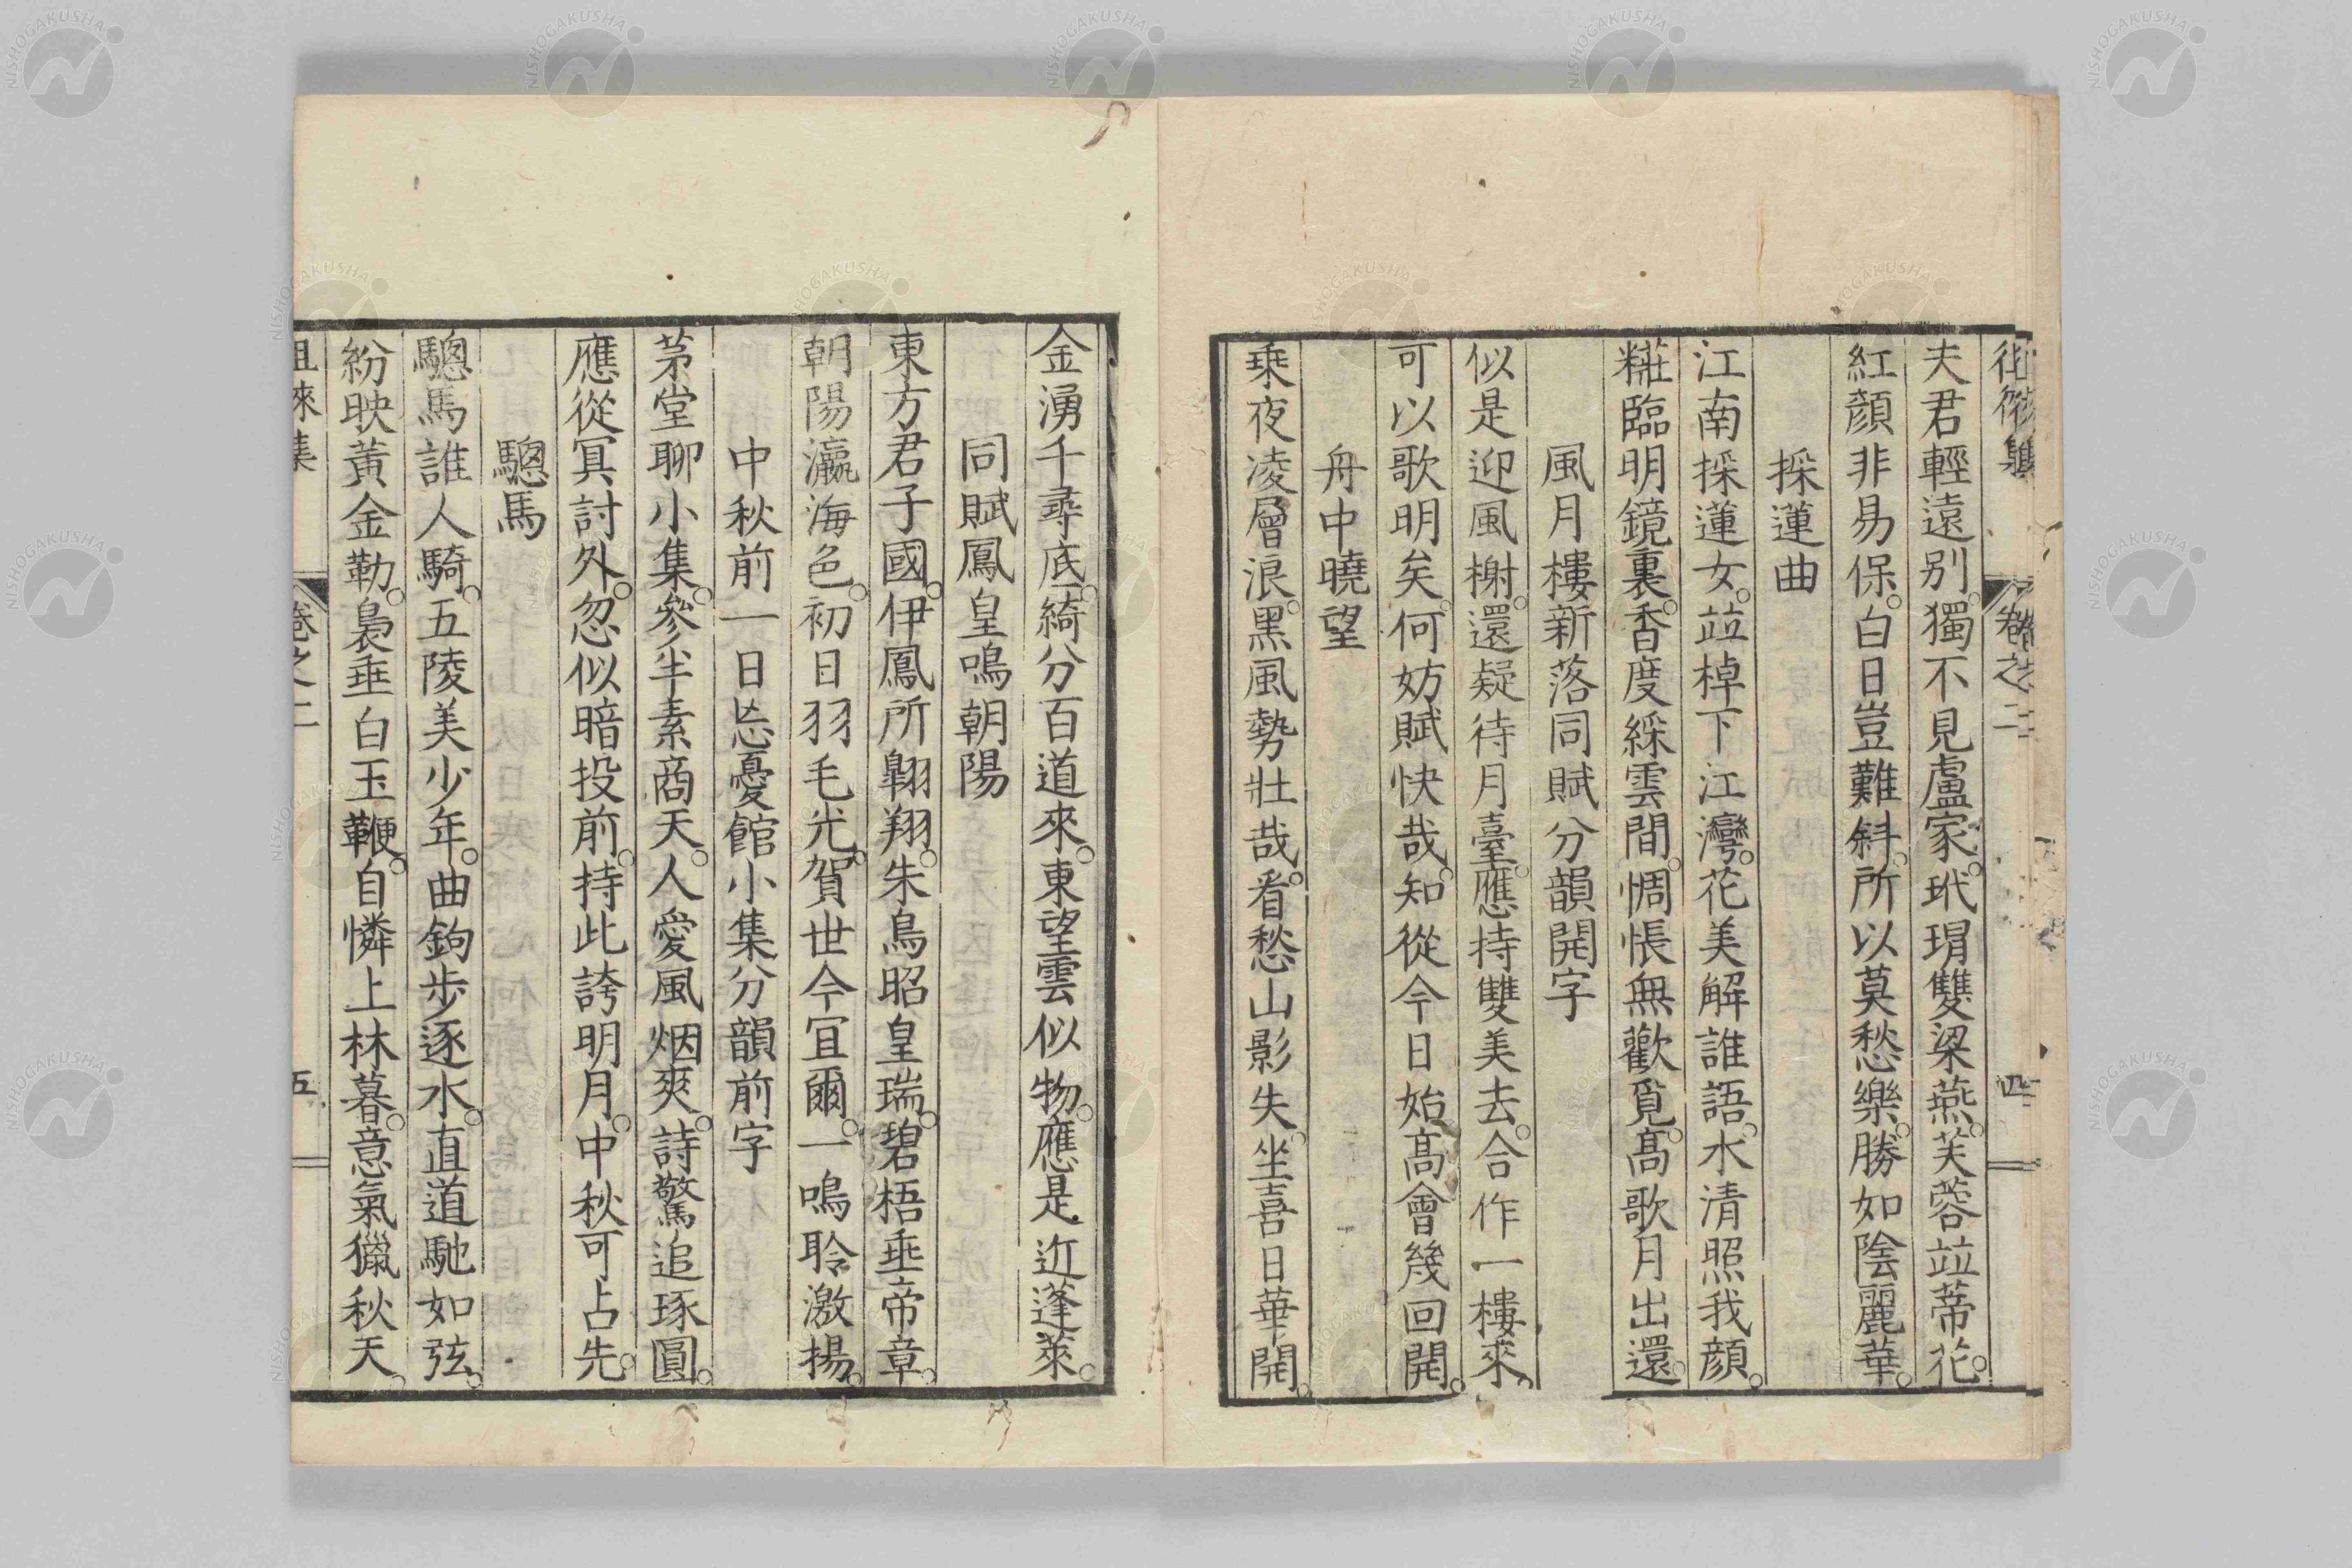 徂徠集 卷之二 四
夫君輕遠別。獨不見盧家。玳瑁雙梁燕。芙蓉竝蒂花。
紅顏非易保。白日豈難斜。所以莫愁樂。勝如陰麗華。
採蓮曲
江南採蓮女。竝棹下江灣。花美解誰語。水清照我顏。
糚臨明鏡裏。香度綵雲間。惆悵無歡覓。高歌月出還。
風月樓新落同賦分韻開字
似是迎風榭。還疑待月臺。應持雙美去。合作一樓來。
可以歌明矣。何妨賦快哉。知從今日始。高會幾回開。
舟中曉望
乘夜凌層浪。黑風勢壯哉。看愁山影失。坐喜日華開。
金湧千尋底。綺分百道來。東望雲似物。應是近蓬萊。
同賦鳳皇鳴朝陽
東方君子國。伊鳳所翺翔。朱鳥昭皇瑞。碧梧垂帝章。
朝陽瀛海色。初日羽毛光。賀世今宜爾。一鳴聆激揚。
中秋前一日忘憂館小集分韻前字
茅堂聊小集。參半素商天。人愛風烟爽。詩驚追琢圓。
應從冥討外。忽似暗投前。持此誇明月。中秋可占先。
驄馬
驄馬誰人騎。五陵美少年。曲鉤步逐水。直道馳如弦。
紛映黃金勒。裊垂白玉鞭。自憐上林暮。意氣獵秋天。
徂徠集 卷之二 五
NISHOGAKUSHA